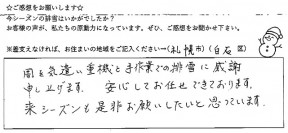 ☆ご感想をお願いします☆
今シーズンの排雪はいかがでしたか?
お客様の声が、私たちの原動力になっています。ぜひ、ご感想をお聞かせ下さい。
※差支えなければ、お住まいの地域をご記入ください→(札幌市)(白石区)
雨を気遣い重機と手作業での排雪に感謝
申し上げます。安心してお任せできております。
来シーズンも是非お願いしたいと思っています。